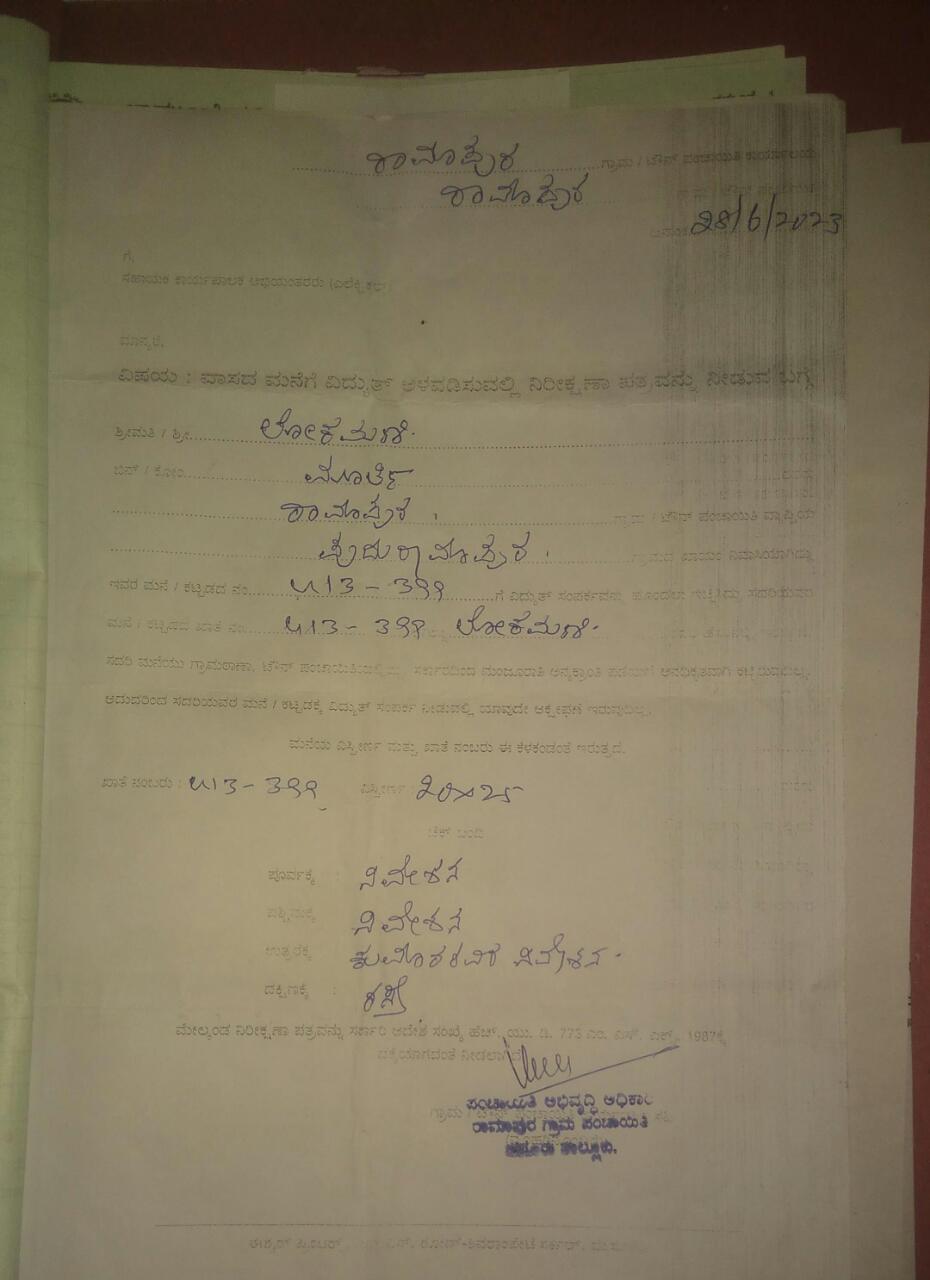 ರಾಮಾಪುರ ಗ್ರಾಮ / ಟೌನ್ ಪಂಚಾಯಿತಿ ಕಾರ್ಯಾಲಯ
ರಾಮಾಪುರ
28/6/2023
ಗೆ,
ಸಹಾಯಕ ಕಾರ್ಯಪಾಲಕ ಅಭಿಯಂತರರು (ಎಲೆಕ್ಟ್ರಿಕಲ್)
ಮಾನ್ಯರೆ,
ವಿಷಯ : ವಾಸದ ಮನೆಗೆ ವಿದ್ಯುತ್ ಅಳವಡಿಸುವಲ್ಲಿ ನಿರೀಕ್ಷಣಾ ಪತ್ರವನ್ನು ನೀಡುವ ಬಗ್ಗೆ
ಶ್ರೀಮತಿ / ಶ್ರೀ ಲೋಕಮಣಿ.
ಬಿನ್ / ಕೋಂ ಮೂರ್ತಿ
ರಾಮಾಪುರ ಗ್ರಾಮ / ಟೌನ್ ಪಂಚಾಯಿತಿ ವ್ಯಾಪ್ತಿಯ
ಪುದುರಾಮಾಪುರ ಗ್ರಾಮದ ಖಾಯಂ ನಿವಾಸಿಯಾಗಿದ್ದು
ಇವರ ಮನೆ / ಕಟ್ಟಡದ ನಂ. 413 - 399 ಗೆ ವಿದ್ಯುತ್ ಸಂಪರ್ಕವನ್ನು ಹೊಂದಲು ಇಚ್ಛಿಸಿದ್ದು ಸದರಿಯವರ
ಮನೆ / ಕಟ್ಟಡದ ಖಾತೆ ನಂ. 413 - 399 ಲೋಕಮಣಿ.
ಸದರಿ ಮನೆಯು ಗ್ರಾಮಠಾಣಾ, ಟೌನ್ ಪಂಚಾಯಿತಿಯಲ್ಲಿದ್ದು ಸರ್ಕಾರದಿಂದ ಮಂಜೂರಾತಿ ಅನಧಿಕೃತವಾಗಿ ಕಟ್ಟಿರುವುದಿಲ್ಲ.
ಆದುದರಿಂದ ಸದರಿಯವರ ಮನೆ / ಕಟ್ಟಡಕ್ಕೆ ವಿದ್ಯುತ್ ಸಂಪರ್ಕ ನೀಡುವಲ್ಲಿ ಯಾವುದೇ ಆಕ್ಷೇಪಣೆ ಇರುವುದಿಲ್ಲ.
ಮನೆಯ ವಿಸ್ತೀರ್ಣ ಮತ್ತು ಖಾತೆ ನಂಬರು ಈ ಕೆಳಕಂಡಂತೆ ಇರುತ್ತದೆ.
ಖಾತೆ ನಂಬರು : 413 - 399 ವಿಸ್ತೀರ್ಣ : 20x25
ಚೆಕ್ ಬಂದಿ
ಪೂರ್ವಕ್ಕೆ : ನಿವೇಶನ
ಪಶ್ಚಿಮಕ್ಕೆ ನಿವೇಶನ
ಉತ್ತರಕ್ಕೆ ಕುಮಾರರವರ ನಿವೇಶನ.
ದಕ್ಷಿಣಕ್ಕೆ : ರಸ್ತೆ
ಮೇಲ್ಕಂಡ ನಿರೀಕ್ಷಣಾ ಪತ್ರವನ್ನು ಸರ್ಕಾರಿ ಆದೇಶ ಸಂಖ್ಯೆ ಹೆಚ್. ಯು. ಡಿ. 773 ಎಂ. ಎನ್. ಎಕ್ಸ್. 1987ಕ್ಕೆ
ನೀಡಲಾಗಿದೆ
ಪಂಚಾಯಿತಿ ಅಭಿವೃದ್ಧಿ ಅಧಿಕಾರಿ
ರಾಮಾಪುರ ಗ್ರಾಮ ಪಂಚಾಯಿತಿ
ತಾಲ್ಲೂಕು.